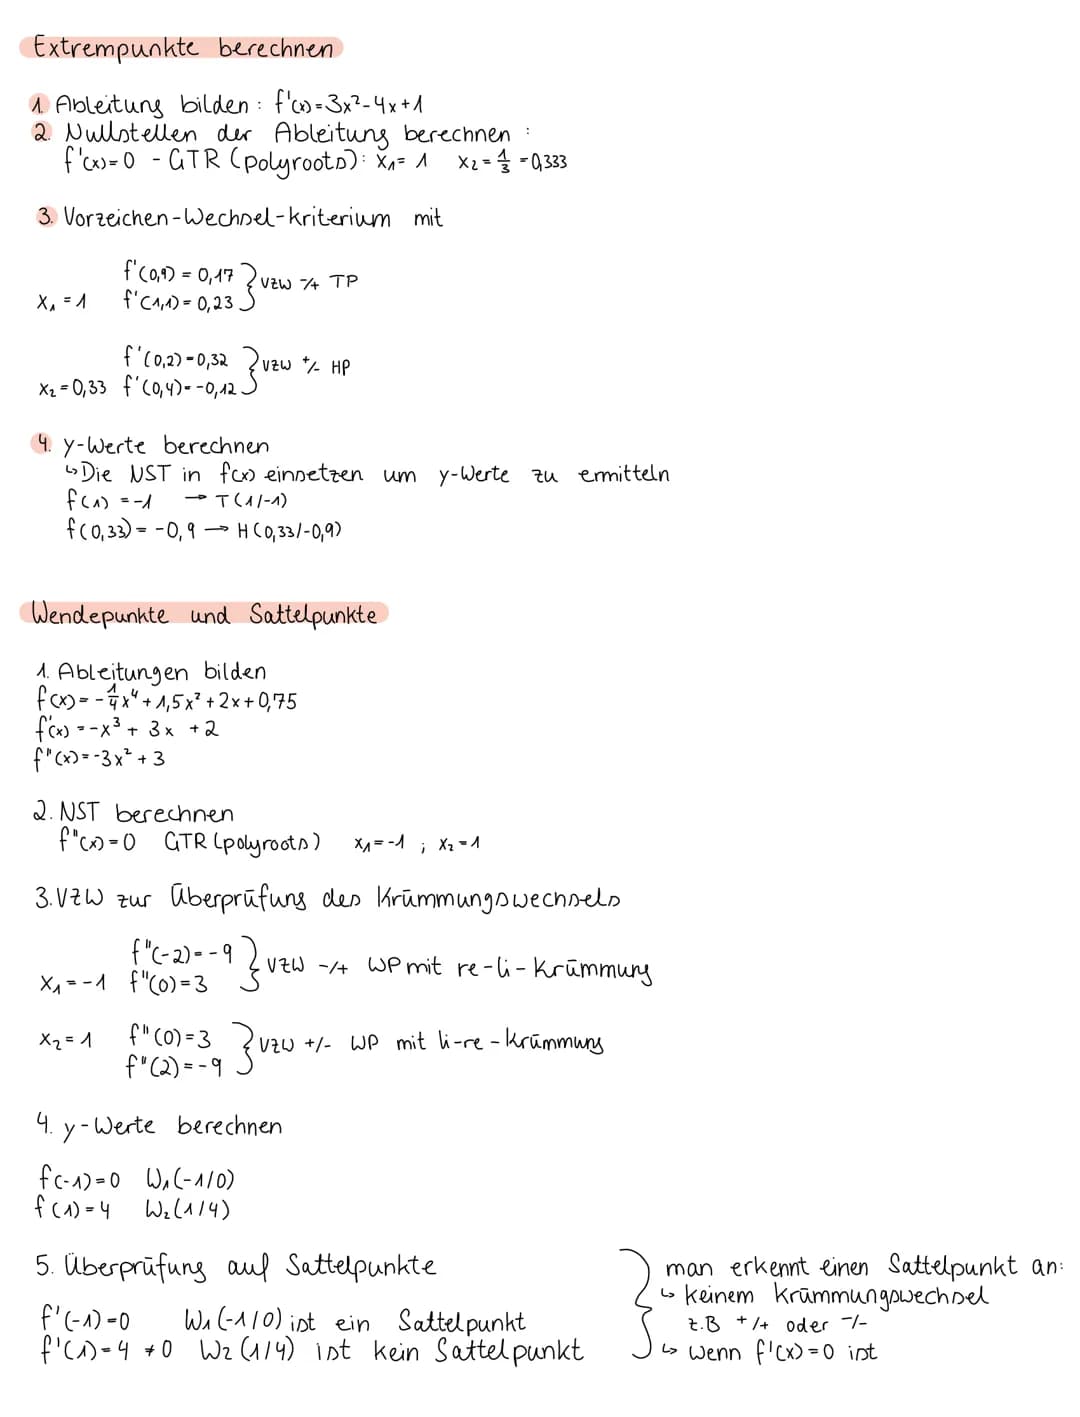 Extrempunkte berechnen
1. Ableitung bilden : f'(x)=3x²-4x+1
2. Nullstellen der Ableitung berechnen :
f'(x)=0 - GTR (polyroots): x₁= 1 x₂= 1/3 =0,333
3. Vorzeichen-Wechsel-kriterium mit
f'(0,9) = 0,17
x₁ = 1 f'(1,1) = 0,23 } VZW -/+ TP
f'(0,2)=0,32
x₂=0,33 f'(0,4)=-0,12 } VZW +/- HP
4. y-Werte berechnen
↳Die NST in f(x) einsetzen um y-Werte zu ermitteln
f(1) = -1 → T(1/-1)
f(0,33) = -0,9 → H(0,33/-0,9)
Wendepunkte und Sattelpunkte
1. Ableitungen bilden
f(x) = -1/4x⁴+1,5x²+2x+0,75
f'(x) = -x³ + 3x +2
f"(x)=-3x² + 3
2. NST berechnen
f"(x)=0 GTR (polyroots) x₁=-1 ; x₂=1
3. VZW zur Überprüfung des Krümmungswechsels
f"(-2)=-9
x₁=-1 f"(0)=3 } VZW -/+ WP mit re-li-Krümmung
x₂=1 f"(0)=3 } VZW +/- WP mit li-re-Krümmung
f"(2)=-9
4. y-Werte berechnen
f(-1)=0 W₁(-1/0)
f(1)=4 W₂(1/4)
5. Überprüfung auf Sattelpunkte
f'(-1)=0 W₁(-1/0) ist ein Sattelpunkt
f'(1)=4 ≠0 W₂(1/4) ist kein Sattelpunkt
man erkennt einen Sattelpunkt an:
↳ keinem Krümmungswechsel
z.B +/+ oder -/-
↳ wenn f'(x)=0 ist